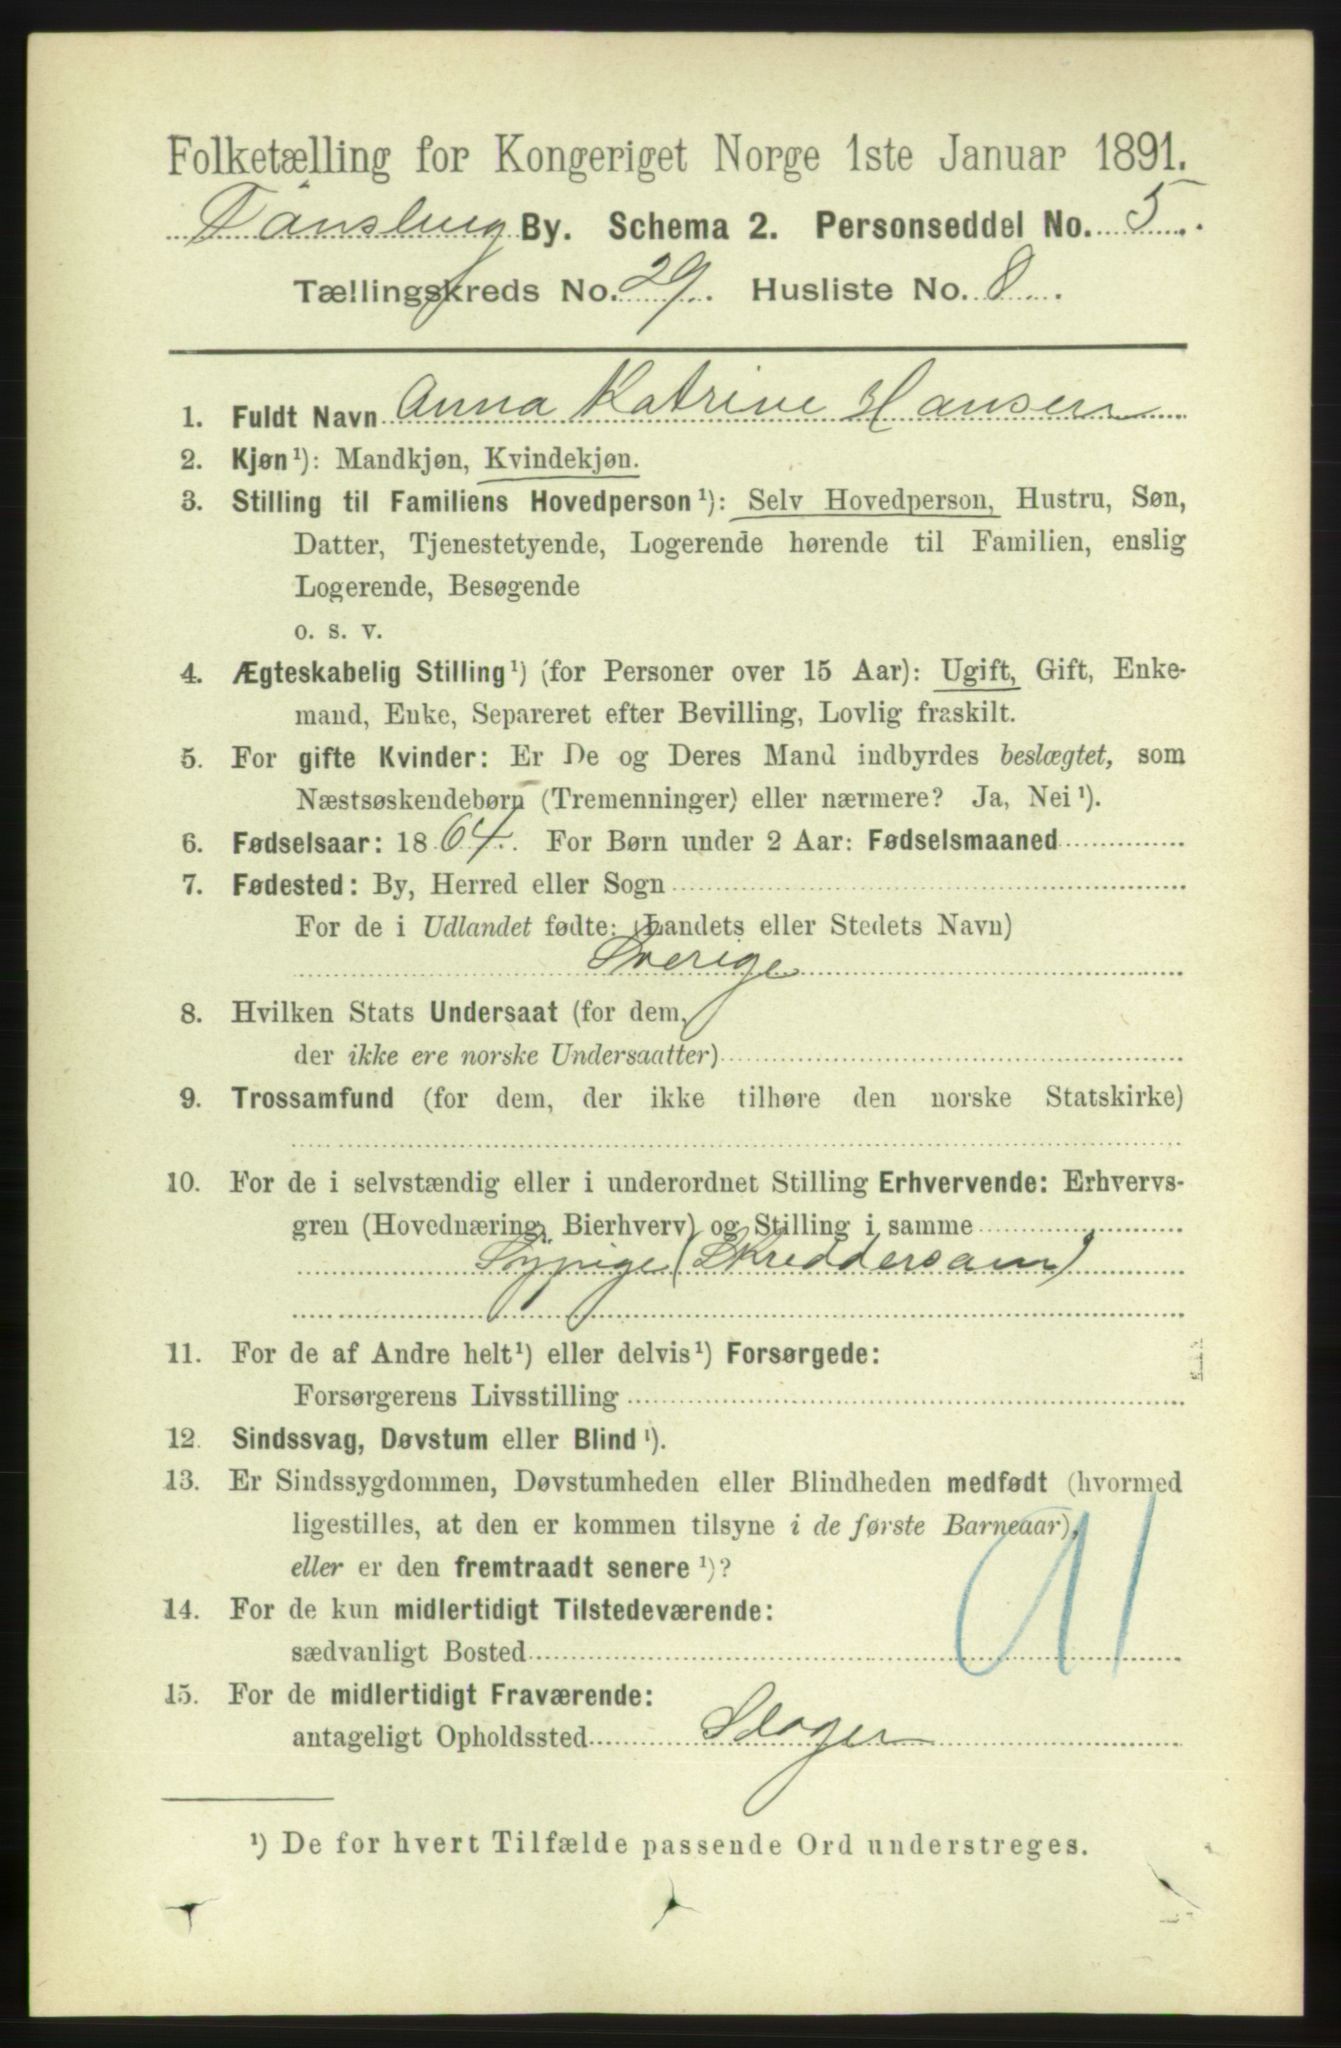 Folketælling for Kongeriget Norge 1ste Januar 1891.
Tønsberg By. Schema 2. Personseddel No. 5.
Tællingskreds No. 29. Husliste No. 8.
1. Fuldt Navn Anna Katrine Hansen
2. Kjøn¹): Mandkjøn, Kvindekjøn.
3. Stilling til Familiens Hovedperson¹): Selv Hovedperson, Hustru, Søn,
Datter, Tjenestetyende, Logerende hørende til Familien, enslig
Logerende, Besøgende
o. s. v.
4. Ægteskabelig Stilling¹) (for Personer over 15 Aar): Ugift, Gift, Enke-
mand, Enke, Separeret efter Bevilling, Lovlig fraskilt.
5. For gifte Kvinder: Er De og Deres Mand indbyrdes beslægtet, som
Næstsøskendebørn (Tremenninger) eller nærmere? Ja, Nei¹).
6. Fødselsaar: 1864. For Børn under 2 Aar: Fødselsmaaned
7. Fødested: By, Herred eller Sogn
For de i Udlandet fødte: (Landets eller Stedets Navn)
Sverige
8. Hvilken Stats Undersaat (for dem,
der ikke ere norske Undersaatter)
9. Trossamfund (for dem, der ikke tilhøre den norske Statskirke)
10. For de i selvstændig eller i underordnet Stilling Erhvervende: Erhvervs-
gren (Hovednæring, Bierhverv) og Stilling i samme
Sypige (Skreddersøm)
11. For de af Andre helt¹) eller delvis¹) Forsørgede:
Forsørgerens Livsstilling
12. Sindssvag, Døvstum eller Blind¹).
13. Er Sindssygdommen, Døvstumheden eller Blindheden medfødt (hvormed
ligestilles, at den er kommen tilsyne i de første Barneaar),
eller er den fremtraadt senere¹)?
91
14. For de kun midlertidigt Tilstedeværende:
sædvanligt Bosted
15. For de midlertidigt Fraværende:
antageligt Opholdssted Slagen
¹) De for hvert Tilfælde passende Ord understreges.